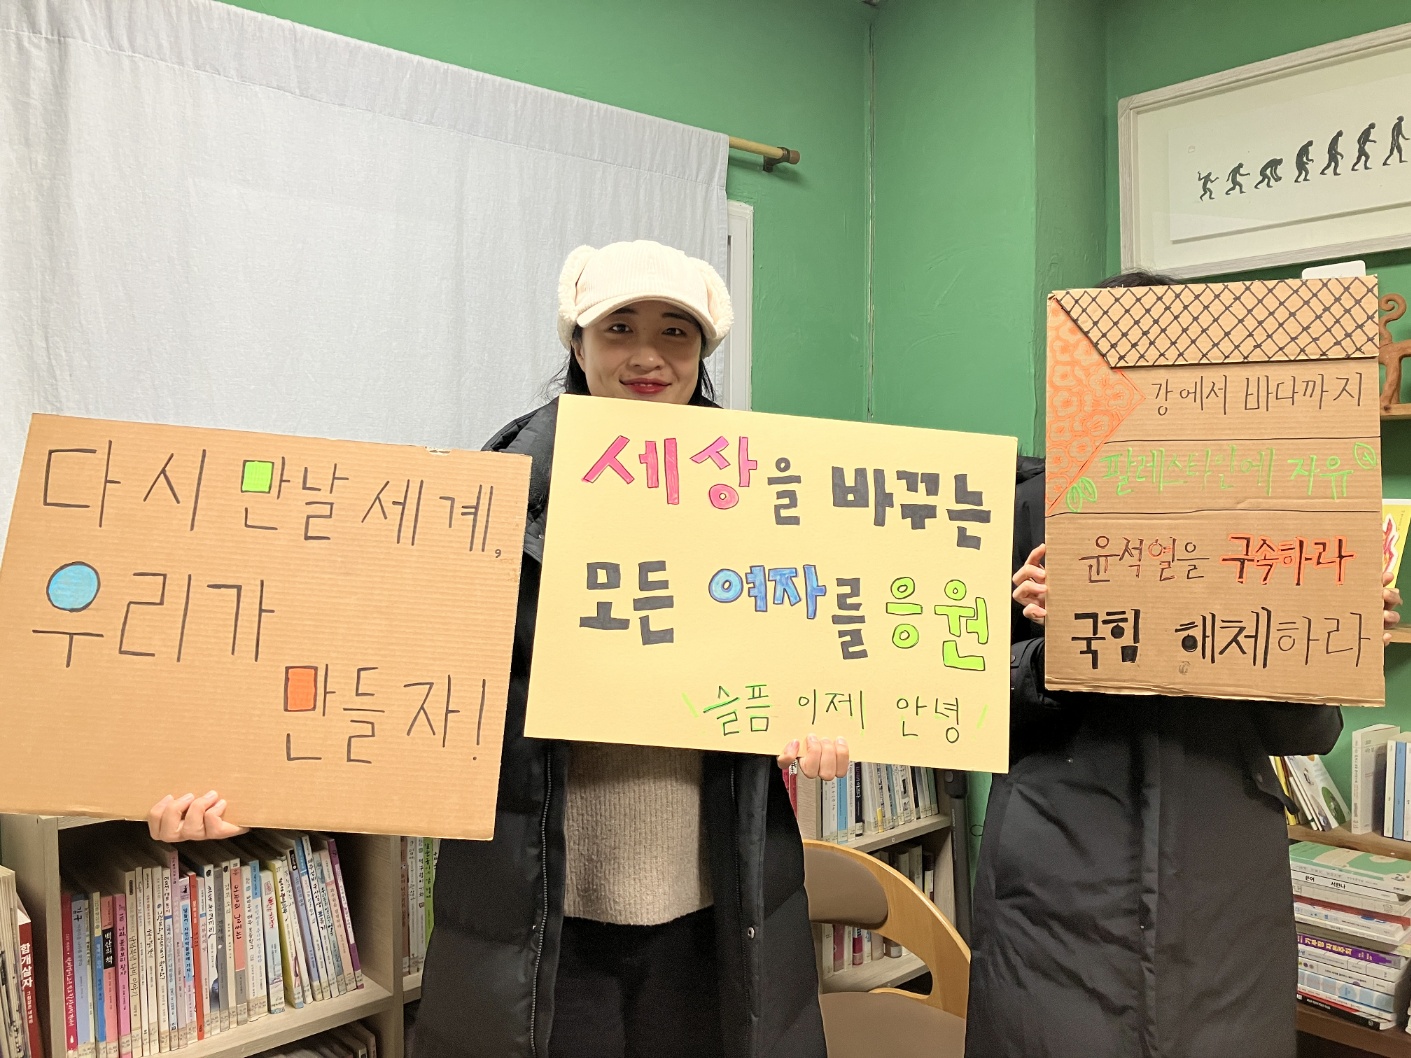 다시 만날 세계,
우리가
만들자!
세상을 바꾸는
모든 여자를 응원
슬픔 이제 안녕
강에서 바다까지
팔레스타인에 자유
윤석열을 구속하라
국힘 해체하라
합개살자
백산의 책